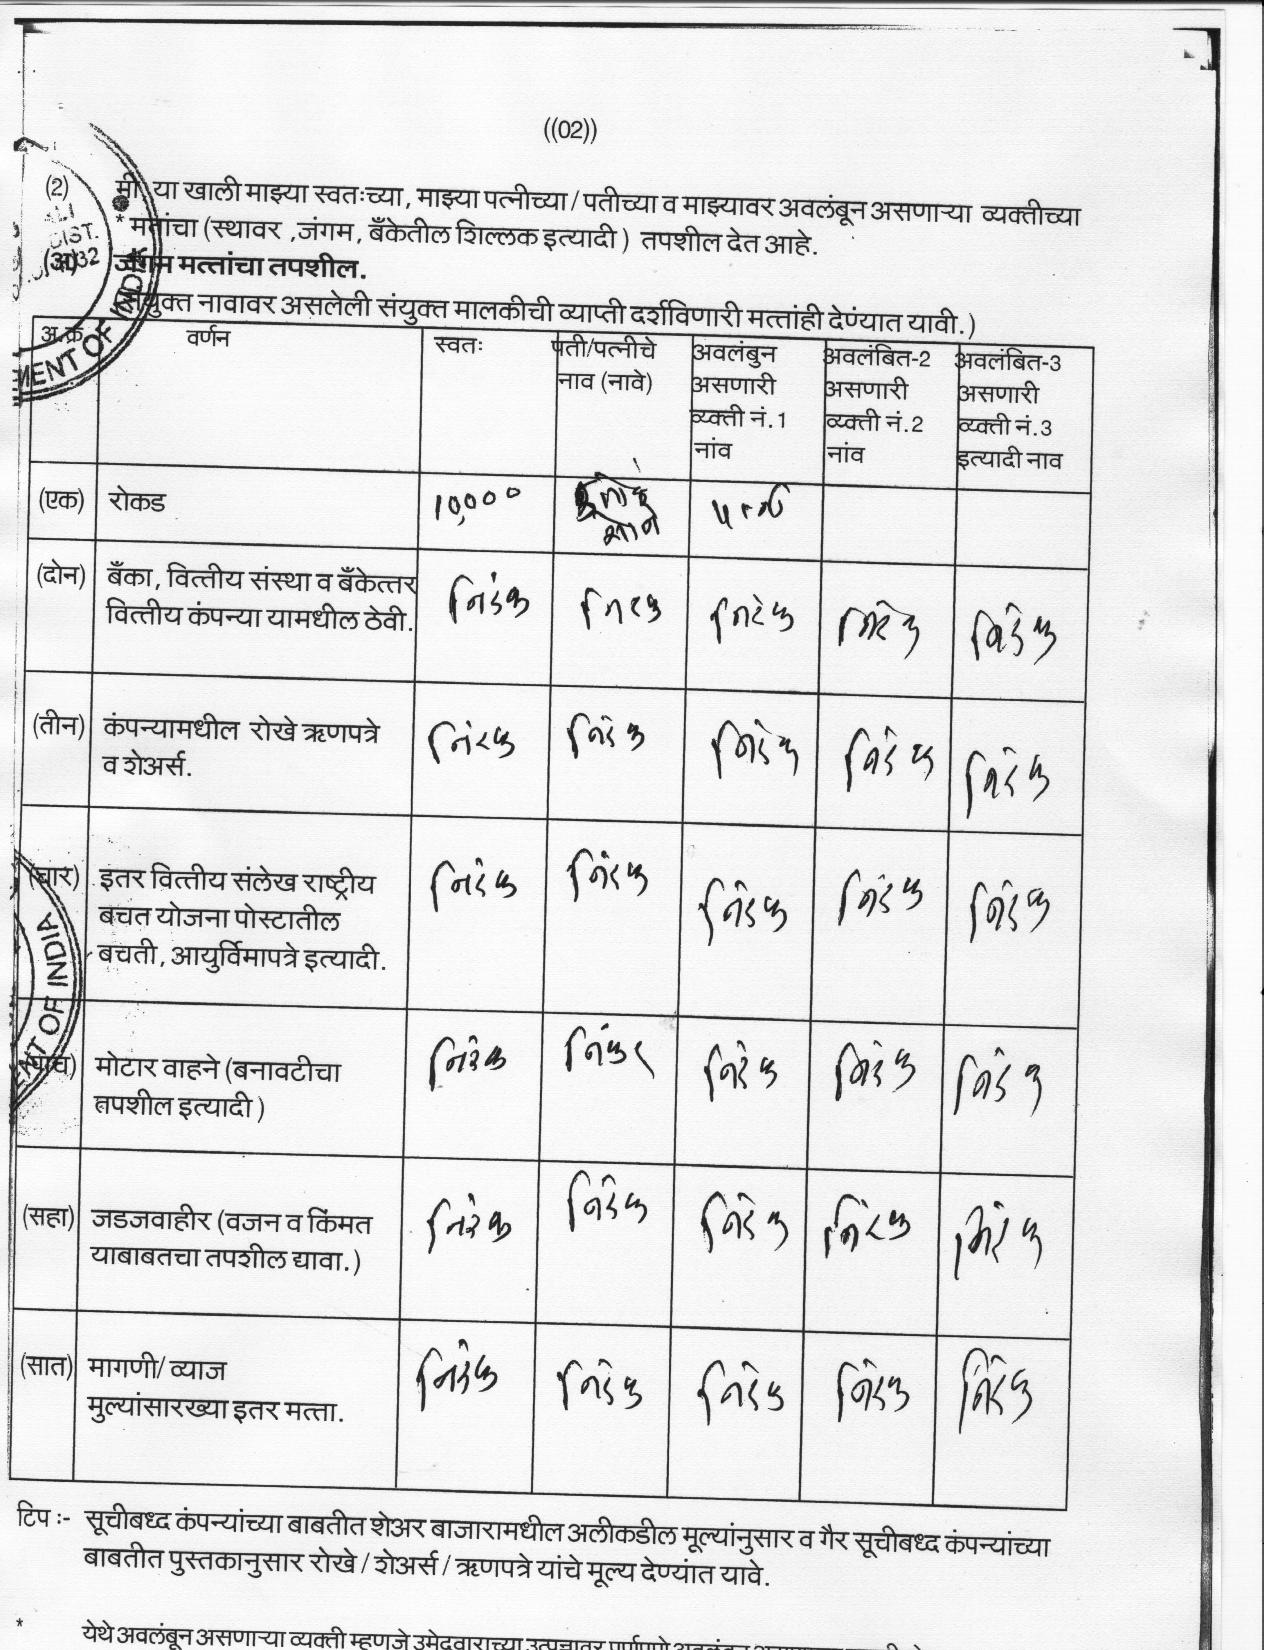 ((02))
(2) मी, या खाली माझ्या स्वतःच्या, माझ्या पत्नीच्या / पतीच्या व माझ्यावर अवलंबून असणाऱ्या व्यक्तीच्या
* मत्तांचा (स्थावर ,जंगम, बँकेतील शिल्लक इत्यादी ) तपशील देत आहे.
(अ) जंगम मत्तांचा तपशील.
नावावर असलेली संयुक्त मालकीची व्याप्ती दर्शविणारी मत्तांही देण्यांत यावी.)
अ.क्र वर्णन स्वतः पती/पत्नीचे नाव (नावे) अवलंबुन असणारी व्यक्ती नं.1 नांव अवलंबित-2 असणारी व्यक्ती नं.2 नांव अवलंबित-3 असणारी व्यक्ती नं.3 इत्यादी नाव
(एक) रोकड 10,000
(दोन) बँका, वित्तीय संस्था व बँकेत्तर वित्तीय कंपन्या यामधील ठेवी. निरंक निरंक निरंक निरंक निरंक
(तीन) कंपन्यामधील रोखे ऋणपत्रे व शेअर्स. निरंक निरंक निरंक निरंक निरंक
(चार) इतर वित्तीय संलेख राष्ट्रीय बचत योजना पोस्टातील बचती, आयुर्विमापत्रे इत्यादी. निरंक निरंक निरंक निरंक निरंक
(पाच) मोटार वाहने (बनावटीचा तपशील इत्यादी ) निरंक निरंक निरंक निरंक
(सहा) जडजवाहीर (वजन व किंमत याबाबतचा तपशील द्यावा.) निरंक निरंक निरंक निरंक निरंक
(सात) मागणी/ व्याज मुल्यांसारख्या इतर मत्ता. निरंक निरंक निरंक निरंक निरंक
टिप :- सूचीबध्द कंपन्यांच्या बाबतीत शेअर बाजारामधील अलीकडील मूल्यांनुसार व गैर सूचीबध्द कंपन्यांच्या
बाबतीत पुस्तकानुसार रोखे / शेअर्स / ऋणपत्रे यांचे मूल्य देण्यांत यावे.
* येथे अवलंबून असणाऱ्या व्यक्ती म्हणजे उमेदवाराच्या
DIST.
OF INDIA
OF INDIA